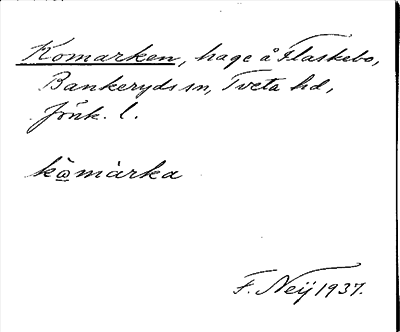 Komarken, hage å Flaskebo,
Bankeryds sn, Tveta hd,
Jönk. l.
ko̲màrka
F. Neij 1937.